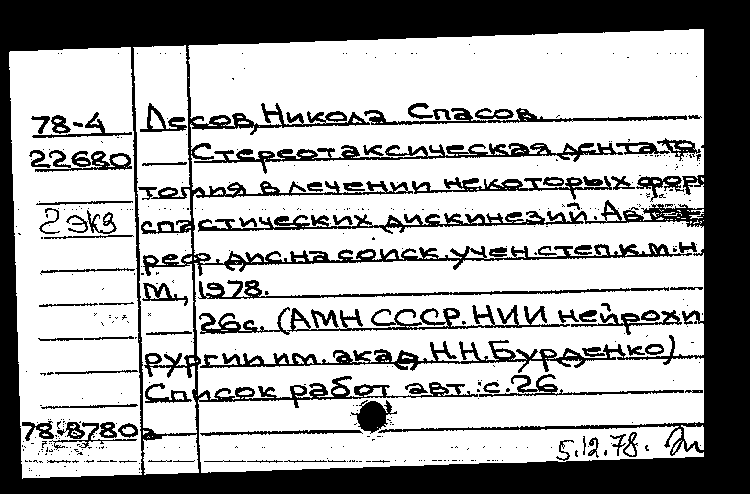 78-4 Лесов, Никола Спасов.
22680 Стереотаксическая дентато-
томия в лечении некоторых форм
2 экз спастических дискинезий. Авто-
реф. дис. на соиск. учен. степ. к.м.н.
М., 1978.
26с. (АМН СССР. НИИ нейрохи
рургии им. акад. Н.Н.Бурденко)
Список работ авт.: с.26.
78-8780а
5.12.78.